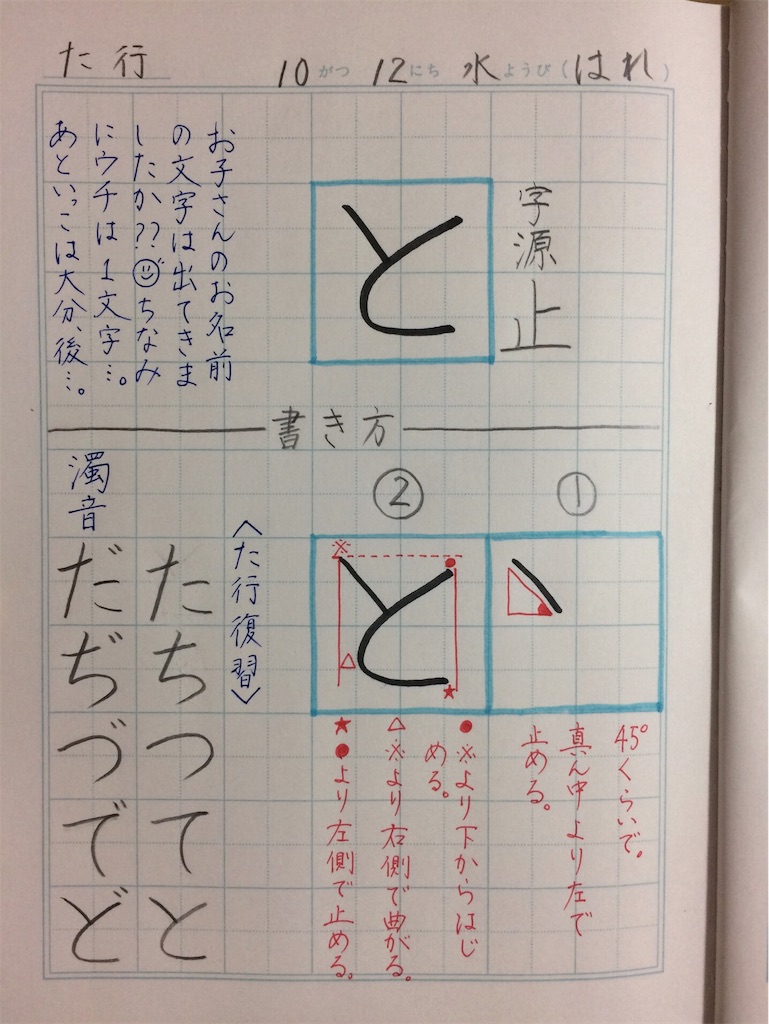 た行
10がつ 12にち 水ようび(はれ)
字源 止
と
お子さんのお名前
の文字は出てきま
したか??ちなみ
にウチは1文字…。
あといっこは大分、後…。
書き方
①
②
45°くらいで。
真ん中より左で
止める。
と
※
●
△
★
●※より下からはじ
める。
△※より右側で曲がる。
★●より左側で止める。
〈た行復習〉
た
ち
つ
て
と
濁音
だ
ぢ
づ
で
ど